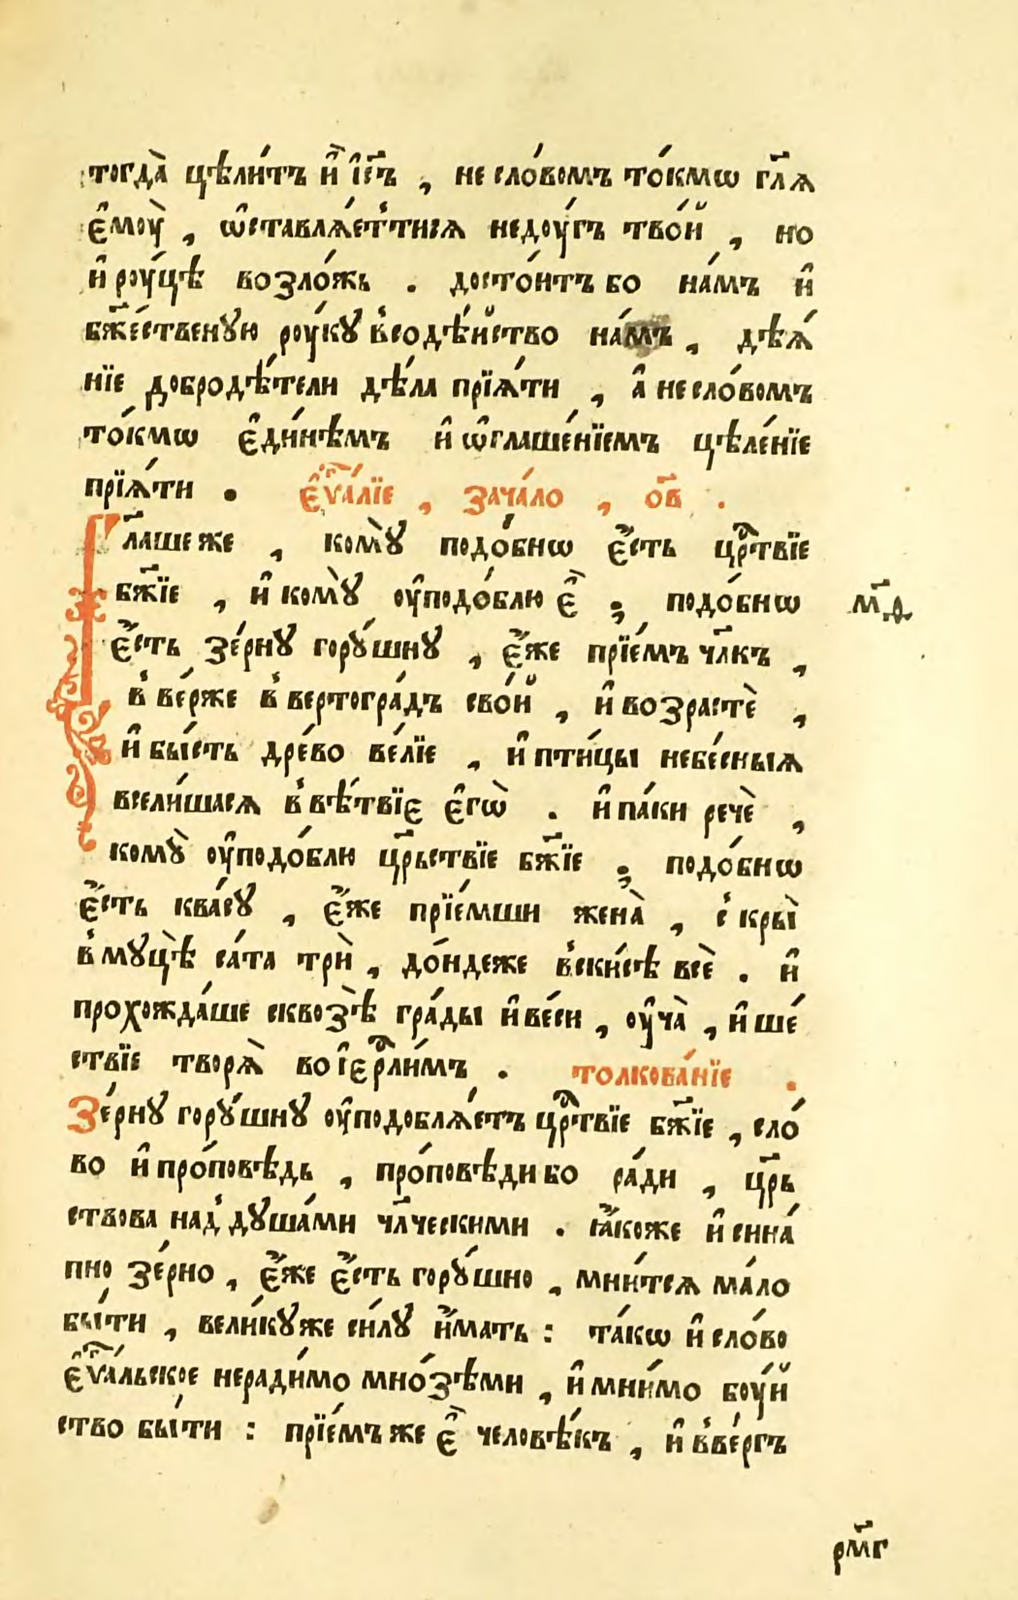 тогда̀ цѣли́тъ и҆̀ і҆с҃ъ , не сло́вомъ то́кмѡ гл҃ѧ
є҆моу̀ , ѡ҆ставлѧ́етътисѧ недоу́гъ тво́й , но
и҆ роу́цѣ возло́жь . досто́итъ бо на́мъ и҆
бж҃е́ственꙋю роу́кꙋ в̾содѣ́йство на́мъ , дѣѧ́
нїе добродѣ́тели дѣ́ла прїѧ́ти , а҆ не сло́вомъ
то́кмѡ є҆ди́нѣмъ и҆ ѡ҆глаше́нїемъ цѣле́нїе
прїѧ́ти . є҆ѵⷢ҇а́лїе , зача́ло , о҃в .
Гл҃аше же , комꙋ̀ подо́бнѡ є҆́сть црⷭ҇твїе
бж҃їе , и҆ комꙋ̀ оу҆подо́блю є҆̀ ; подо́бнѡ м҃ѳ
є҆́сть зе́рнꙋ горꙋ́шнꙋ , є҆́же прїе́мъ чл҃къ ,
в̾ ве́рже в̾ вертогра́дъ сво́й , и҆ возрастѐ ,
и҆ бы́сть дре́во ве́лїе , и҆ пти́цы небе́сныѧ
всели́шасѧ в̾ вѣ́твїе є҆гѡ̀ . и҆ па́ки речѐ ,
комꙋ̀ оу҆подо́блю цр҃ьствїе бж҃їе ; подо́бнѡ
є҆́сть ква́сꙋ , є҆́же прїе́мши жена̀ , с̾ кры̀
в̾ мꙋцѣ̀ са́та трѝ , до́ндеже в̾ски́сѣ всѐ . и҆
прохожда́ше сквозѣ̀ гра́ды и҆ ве́си , оу҆ча̀ , и҆ ше́
ствїе творѧ̀ во і҆ерⷭ҇ли́мъ . толкова́нїе .
Зе́рнꙋ горꙋ́шнꙋ оу҆подоблѧ́етъ црⷭ҇твїе бж҃їе , сло́
во и҆ про́повѣдь , про́повѣди бо ра́ди , цр҃ь
ствова над̾ дꙋша́ми чл҃ческими . ꙗ҆́коже и҆ сина́
пно зе́рно , є҆́же є҆́сть горꙋ́шно , мни́тсѧ ма́ло
бы́ти , вели́кꙋже си́лꙋ и҆́мать : та́кѡ и҆ сло́во
є҆ѵⷢ҇а́льское неради́мо мно́зѣми , и҆ мни́мо боу́й
ство бы́ти : прїе́мъ же є҆̀ человѣ́къ , и҆ в̾ве́ргъ
рм҃г